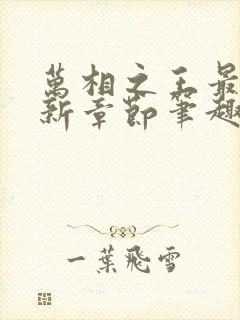 萬相之王最
新章節筆趣
一葉飛雪